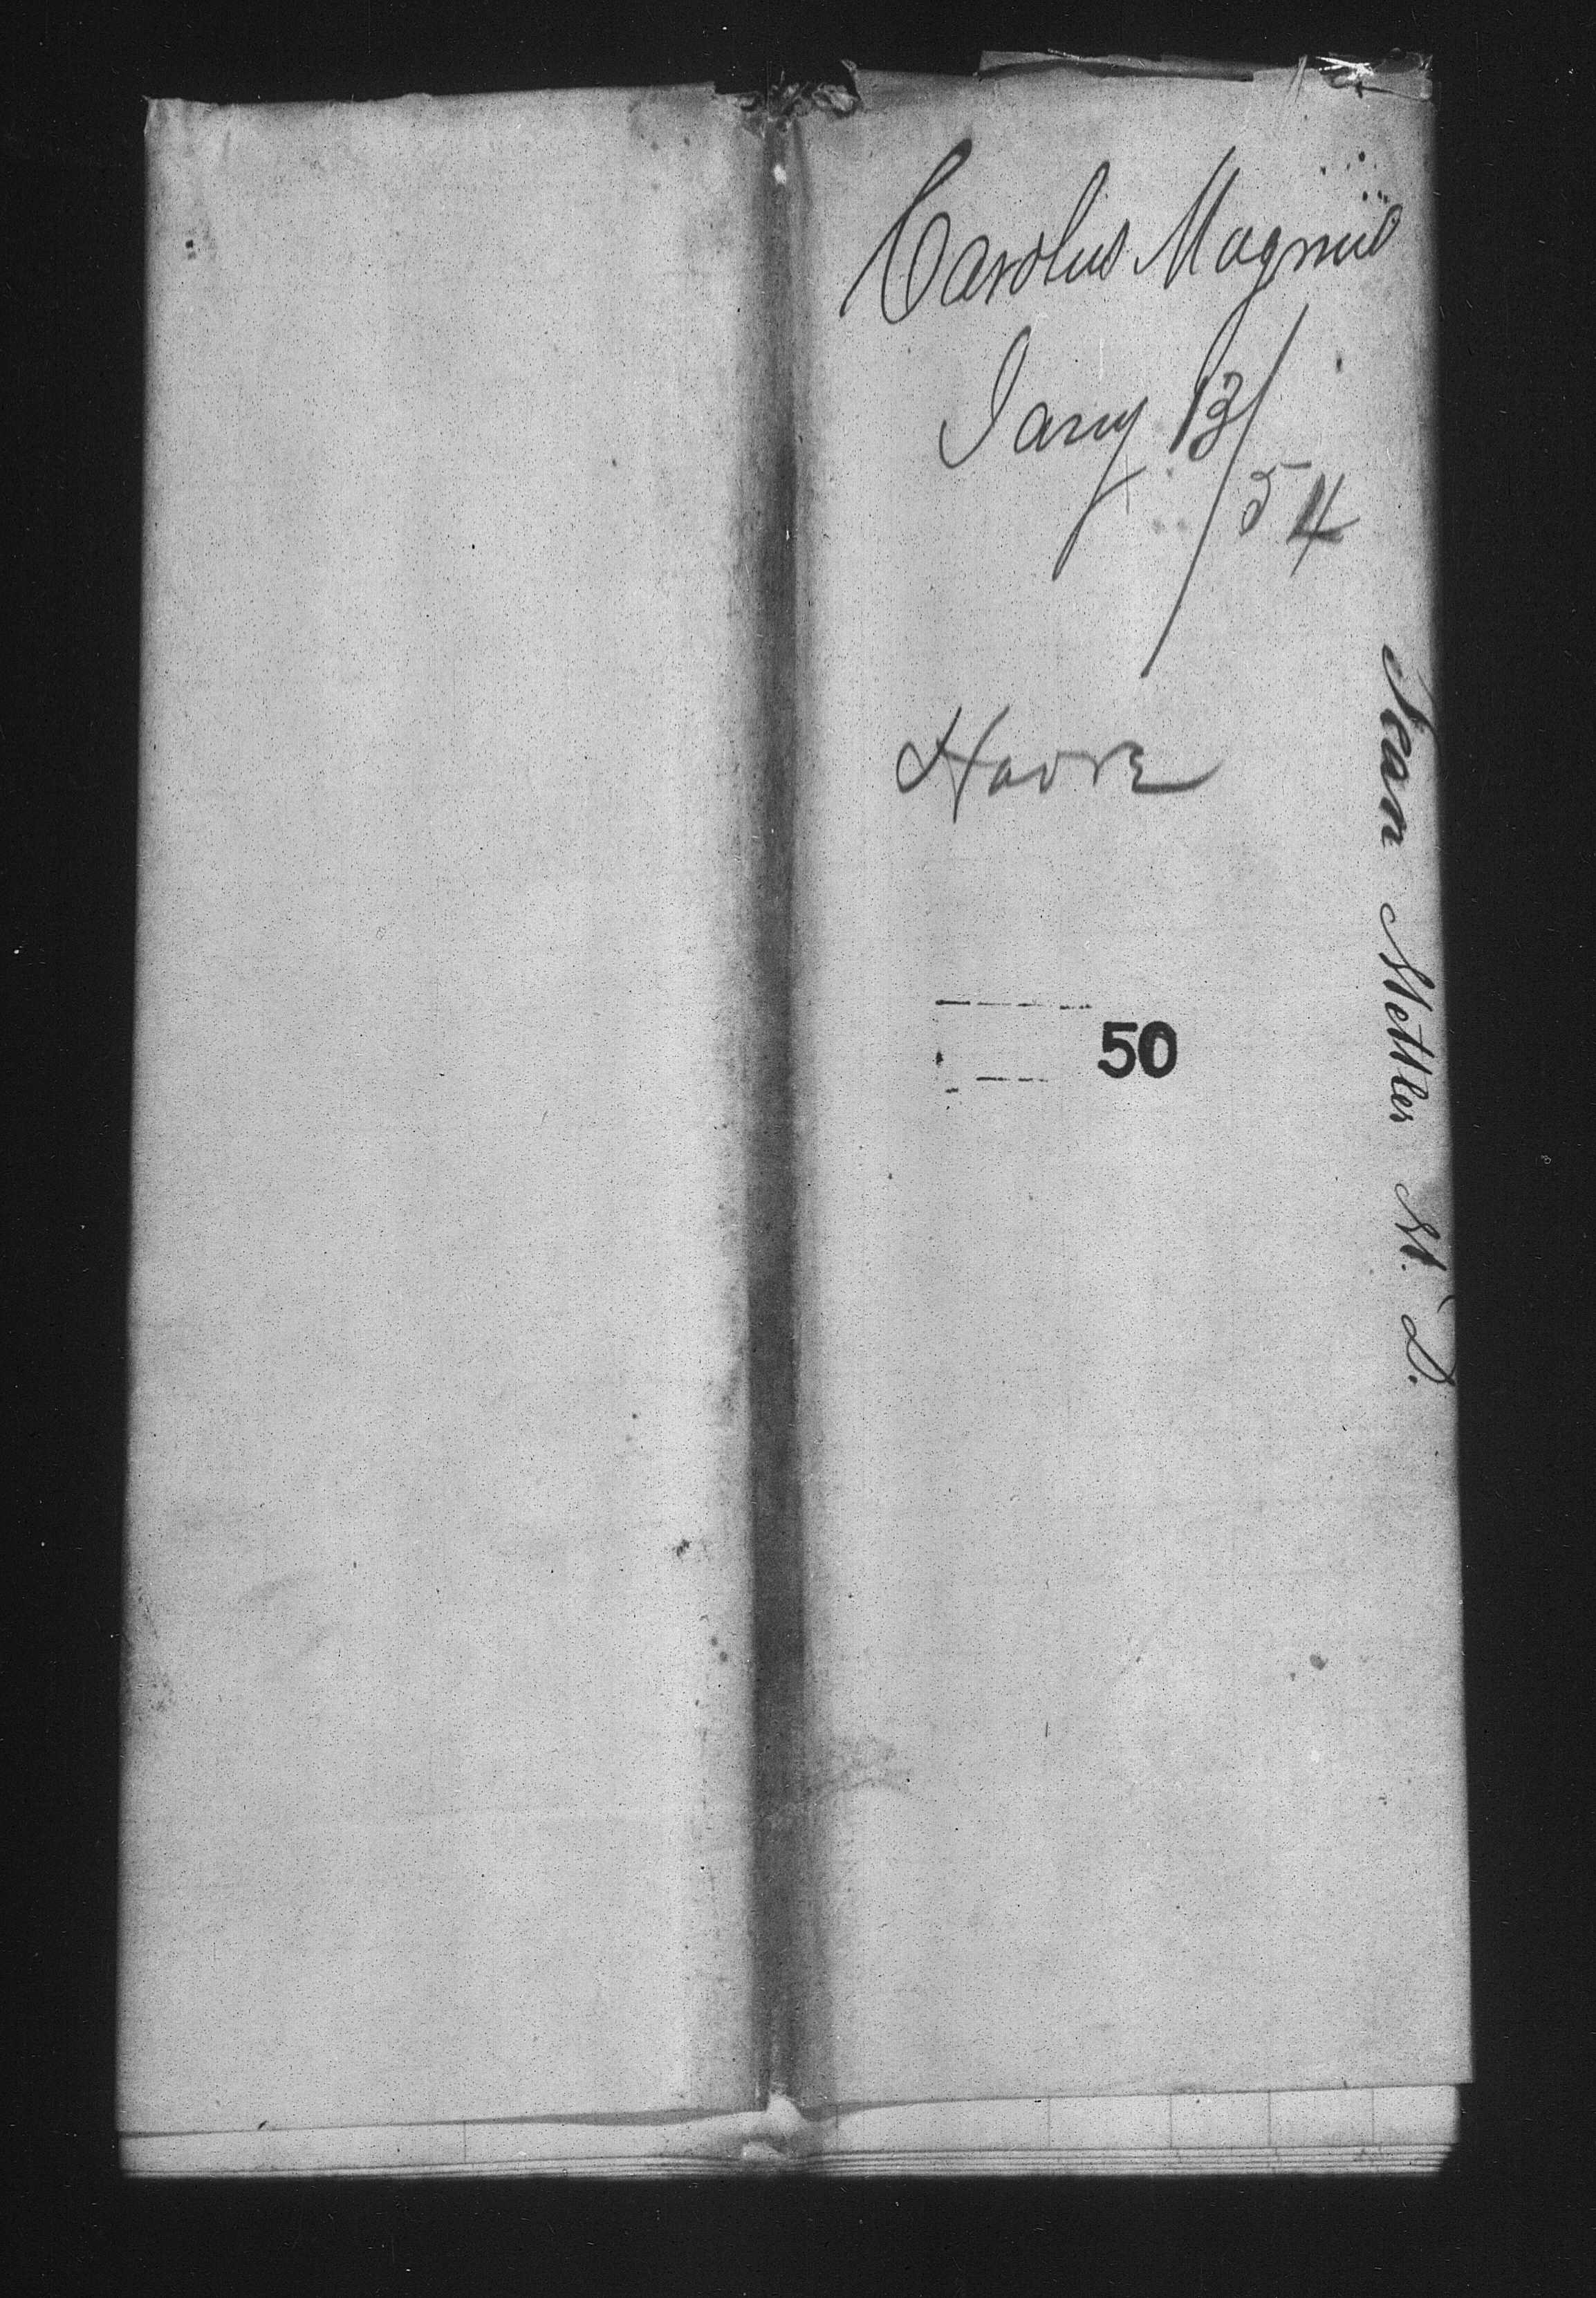 Carolus Magnus
Jany 13/54
Havre
50
Jean Mettler M. D.